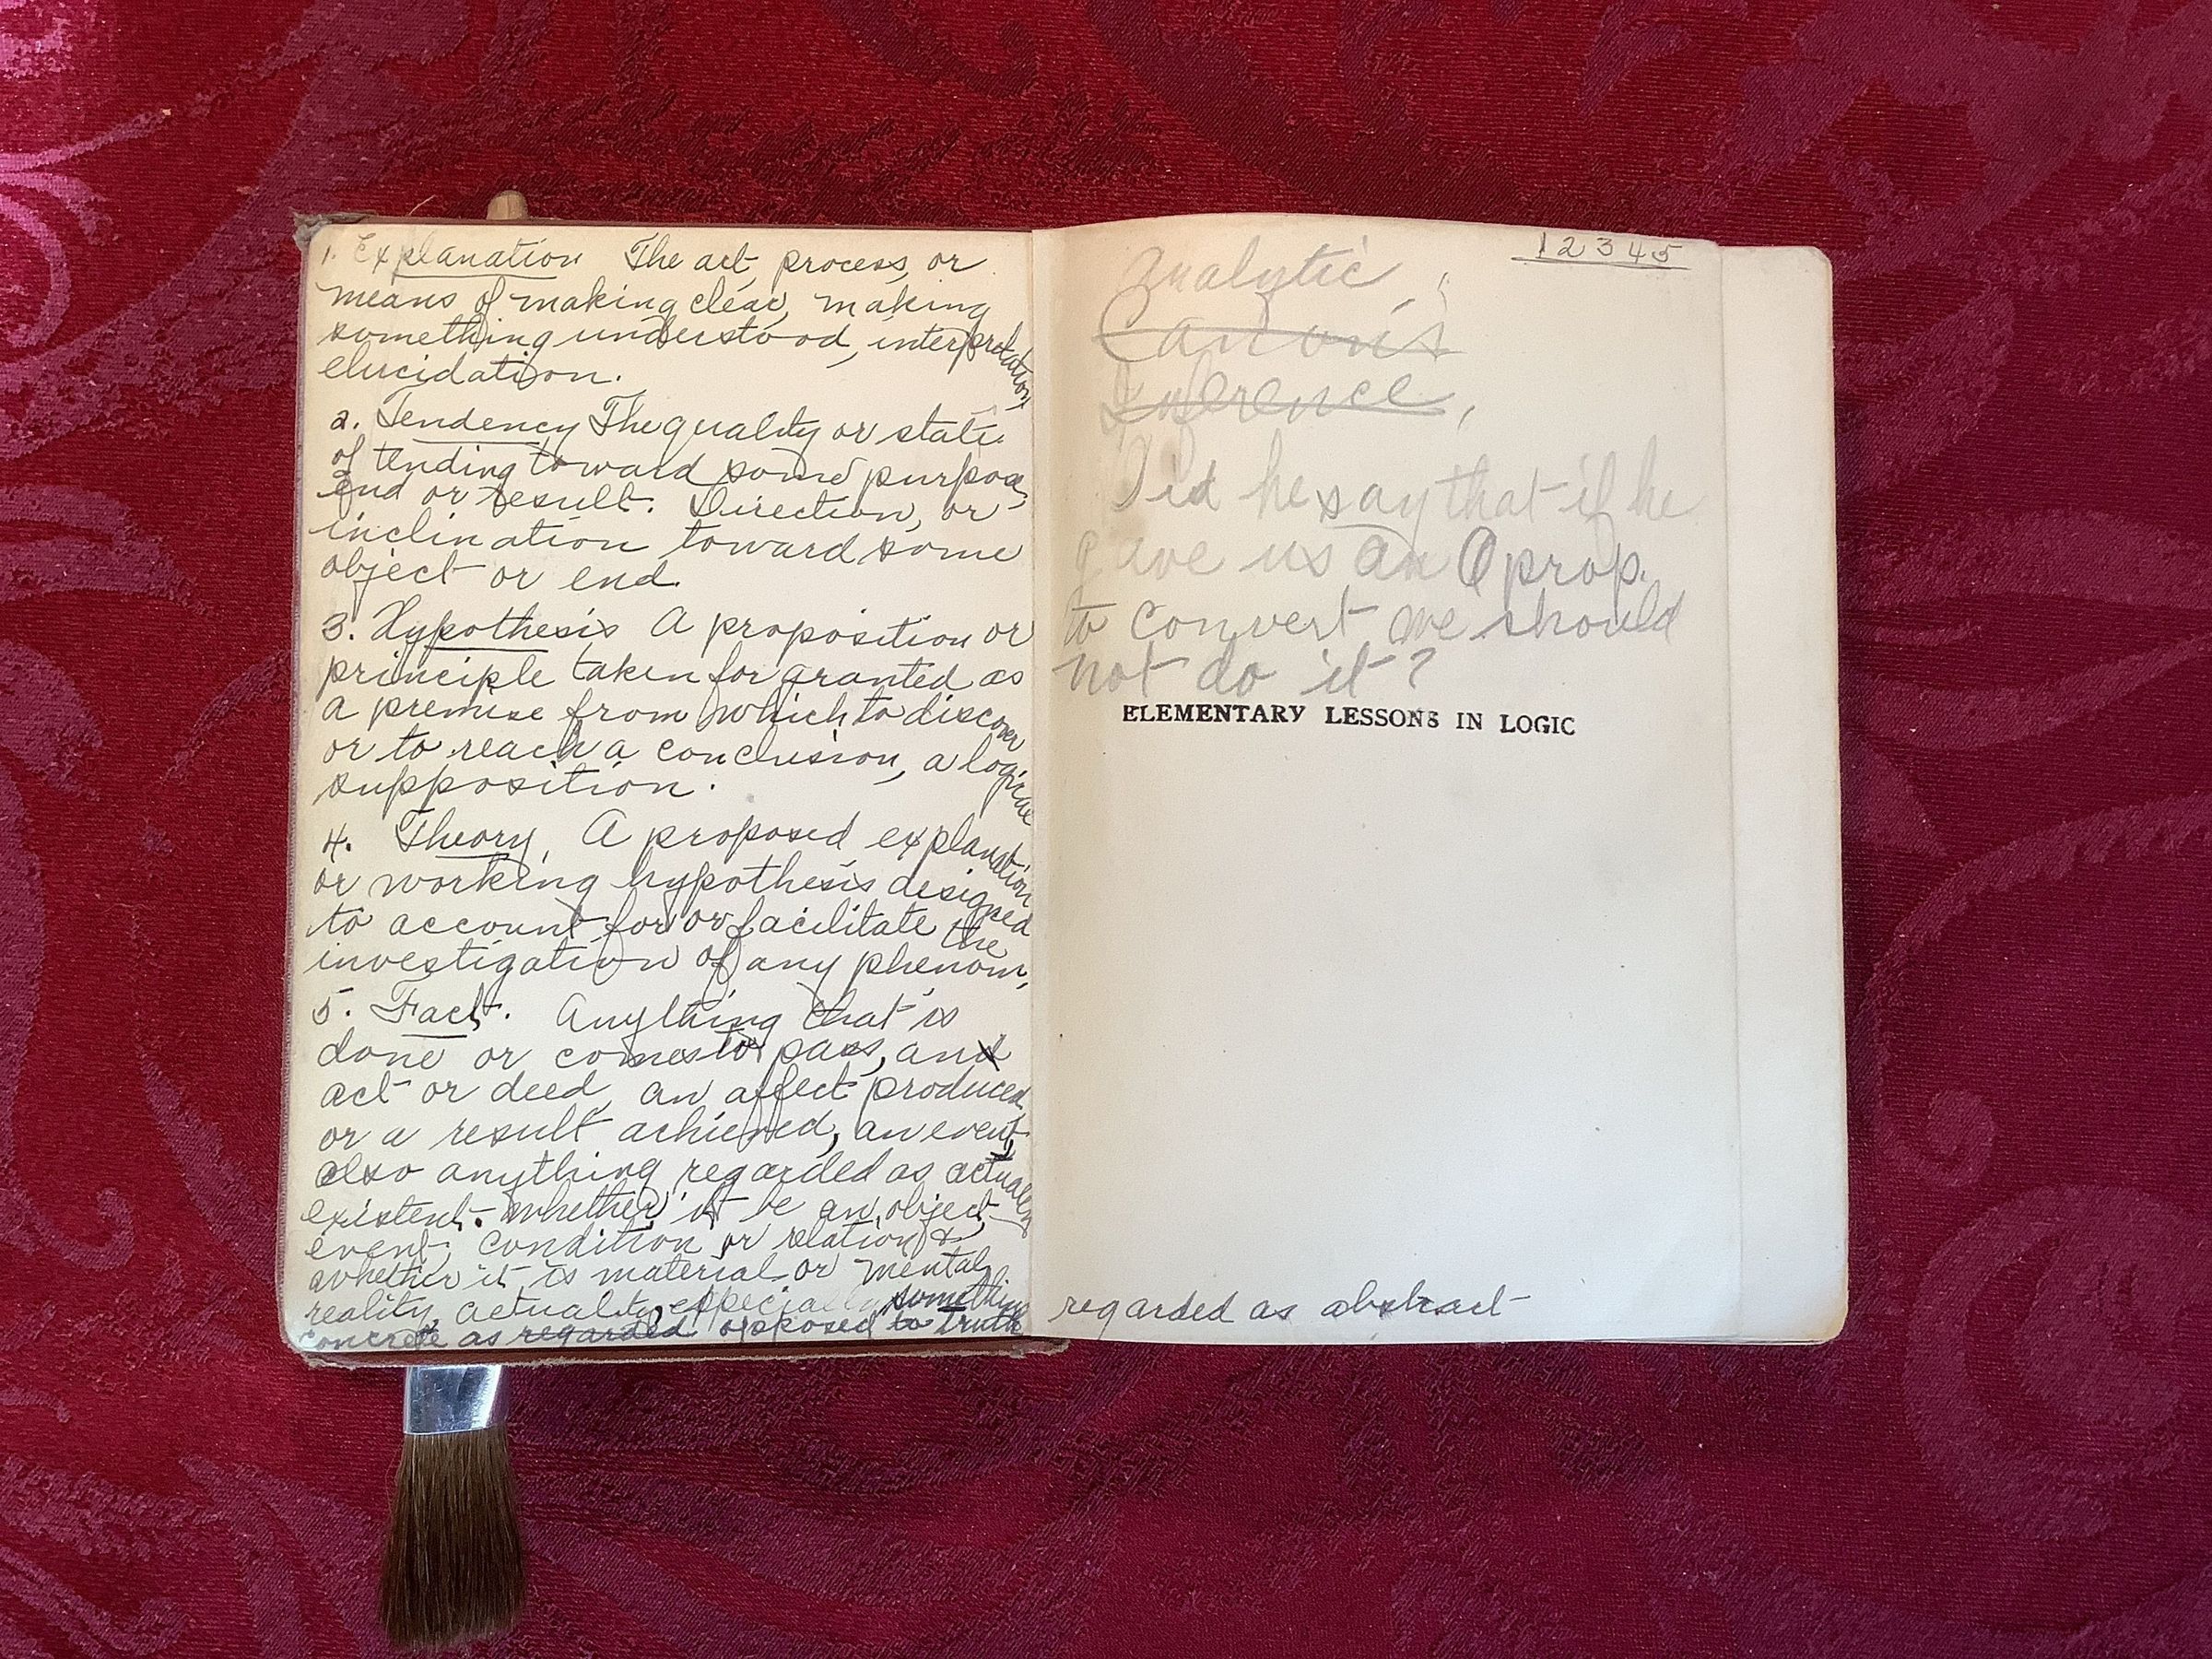 1. Explanation The act, process, or
means of making clear, making
something understood, interpretation,
elucidation.
2. Tendency The quality or state
of tending toward some purpose,
end or result. Direction, or
inclination toward some
object or end.
3. Hypothesis A proposition or
principle taken for granted as
a premise from which to discover
or to reach a conclusion, a logical
supposition.
4. Theory, A proposed explanation
or working hypothesis designed
to account for or facilitate the
investigation of any phenom,
5. Fact. Anything that is
done or comes to pass, and
act or deed, an affect produced,
or a result achieved, an event,
also anything regarded as actually
existent. whether it be an object,
event, condition or relation &
whether it is material or mental
reality, actuality, especially something
concrete as regarded opposed to truth
12345
Analytic,
Canons
Inference,
Did he say that if he
gave us an O prop.
to convert we should
not do it?
ELEMENTARY LESSONS IN LOGIC
regarded as abstract